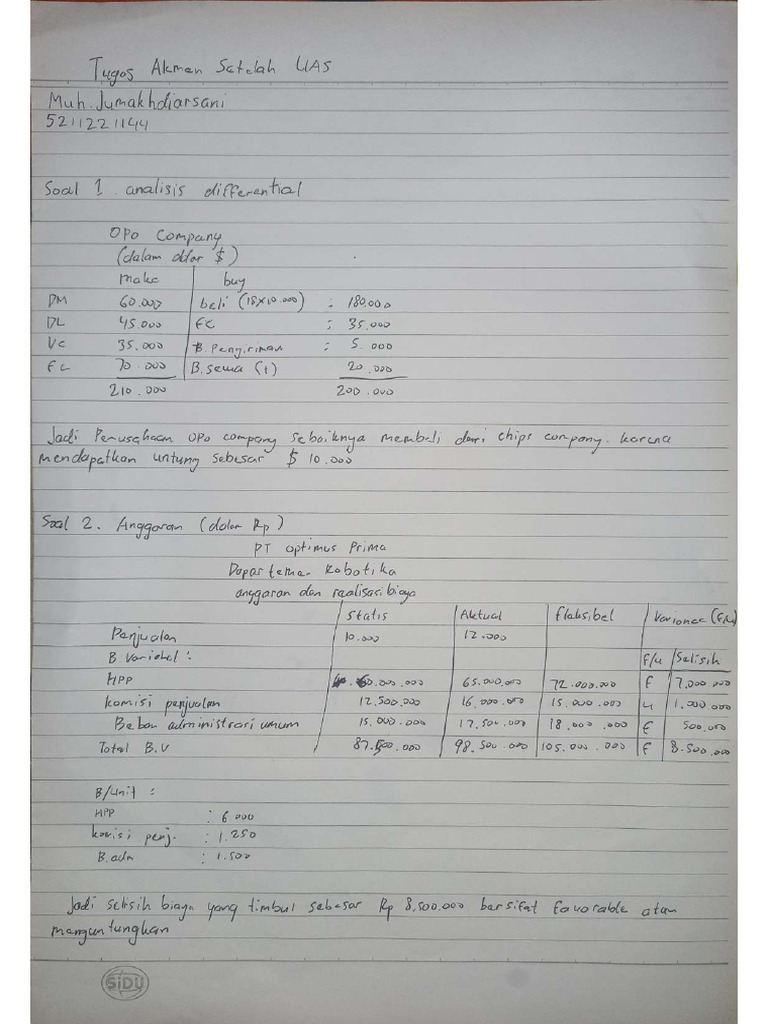 Tugas Akmen Setelah UAS
Muh. Jumakhdiarsani
5211221144
Soal 1. analisis differential
OPO Company
(dalam dolar $)
make buy
DM 60.000 beli (18x10.000) : 180.000
DL 45.000 FC : 35.000
VC 35.000 B. Pengiriman : 5.000
FC 70.000 B. sewa (t) 20.000
210.000 200.000
Jadi Perusahaan OPO company sebaiknya membeli dari chips company. karena
mendapatkan untung sebesar $ 10.000
Soal 2. Anggaran (dalam Rp)
PT Optimus Prima
Departemen Robotika
anggaran dan realisasi biaya
Statis Aktual Fleksibel Variance
Penjualan 10.000 12.000
B. Variabel : F/u Selisih
HPP 60.000.000 65.000.000 72.000.000 F 7.000.000
Komisi penjualan 12.500.000 16.000.000 15.000.000 u 1.000.000
Beban administrasi umum 15.000.000 17.500.000 18.000.000 F 500.000
Total B.V 87.500.000 98.500.000 105.000.000 F 8.500.000
B/unit :
HPP : 6.000
komisi penj. : 1.250
B. adm : 1.500
Jadi selisih biaya yang timbul sebesar Rp 8.500.000 bersifat favorable atau
menguntungkan
SiDU